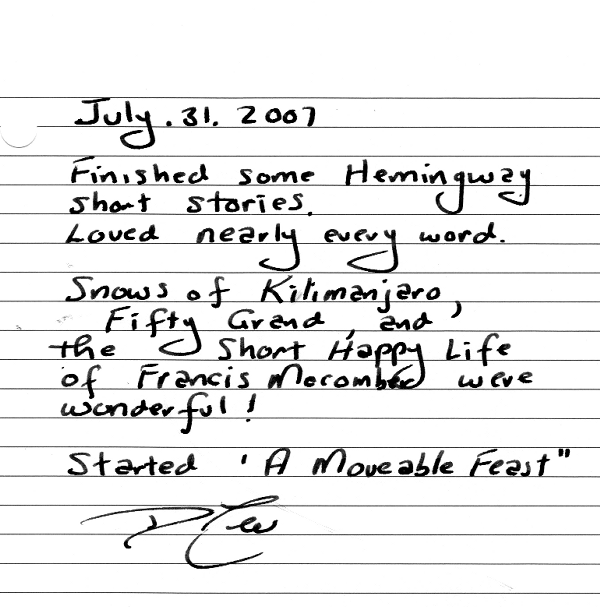 July. 31. 2007
Finished some Hemingway
short stories.
Loved nearly every word.
Snows of Kilimanjaro,
Fifty Grand, and
the Short Happy Life
of Francis Mocomber were
wonderful!
Started ' A Moveable Feast"